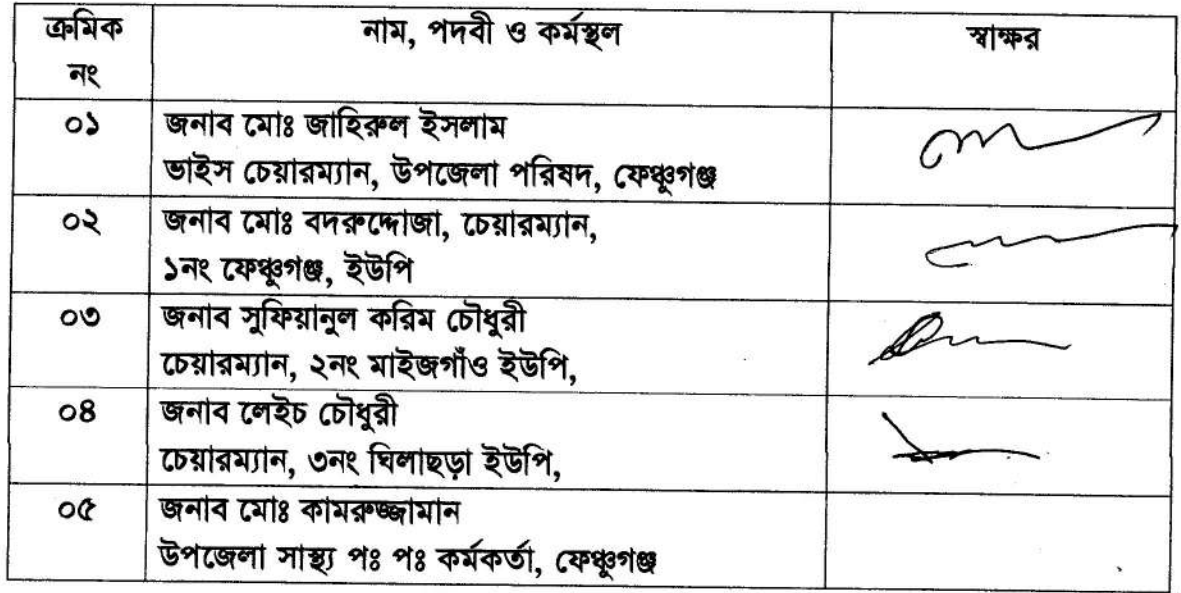 ক্রমিক নং নাম, পদবী ও কর্মস্থল স্বাক্ষর
০১ জনাব মোঃ জাহিরুল ইসলাম
ভাইস চেয়ারম্যান, উপজেলা পরিষদ, ফেঞ্চুগঞ্জ
০২ জনাব মোঃ বদরুদ্দোজা, চেয়ারম্যান,
১নং ফেঞ্চুগঞ্জ, ইউপি
০৩ জনাব সুফিয়ানুল করিম চৌধুরী
চেয়ারম্যান, ২নং মাইজগাঁও ইউপি,
০৪ জনাব লেইচ চৌধুরী
চেয়ারম্যান, ৩নং ঘিলাছড়া ইউপি,
০৫ জনাব মোঃ কামরুজ্জামান
উপজেলা সাস্থ্য পঃ পঃ কর্মকর্তা, ফেঞ্চুগঞ্জ